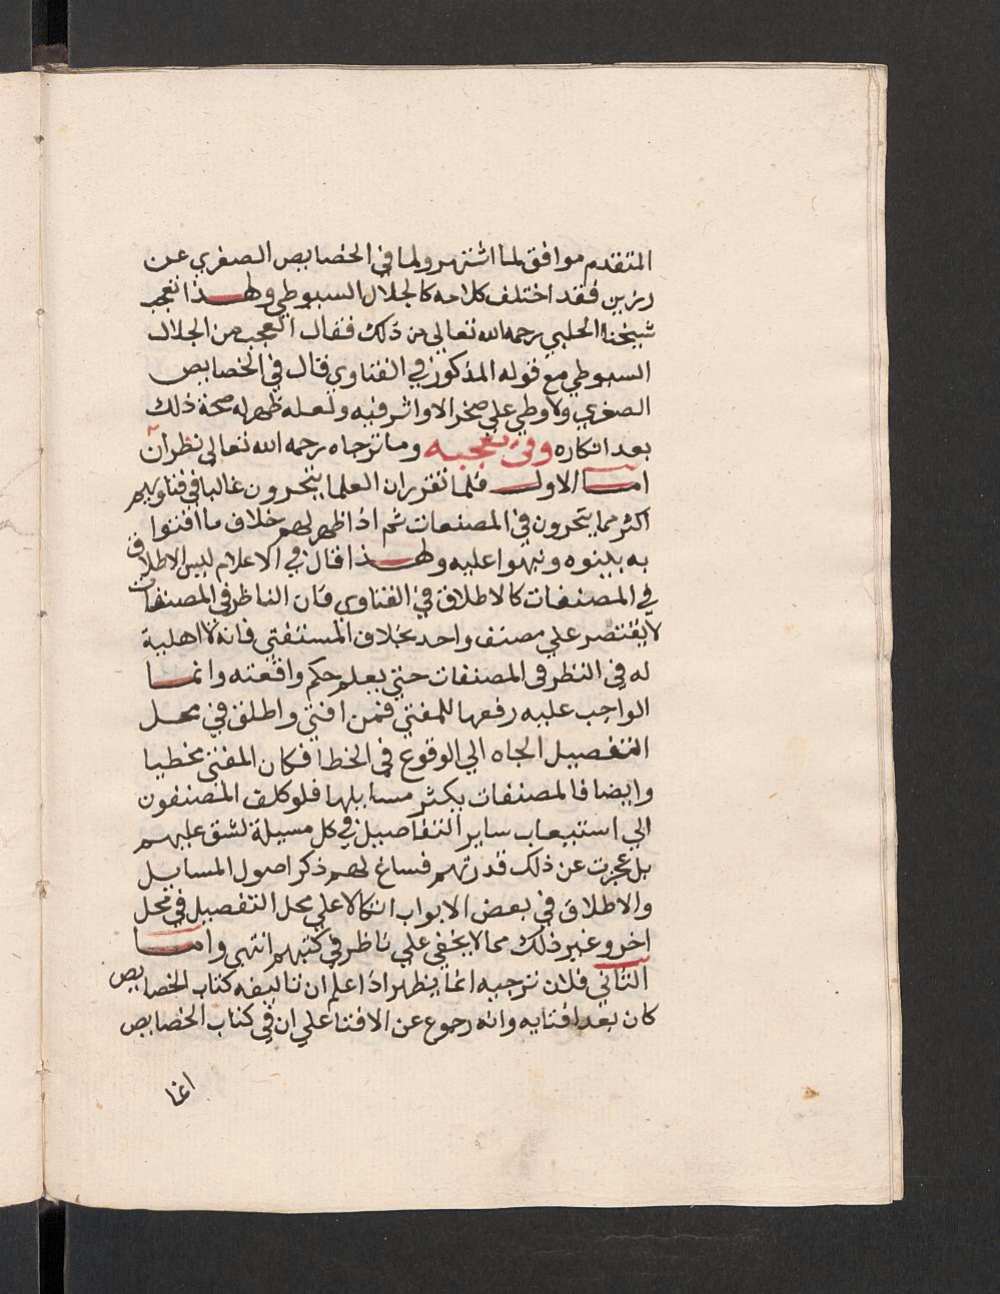 المتقدم موافق لما اشتهر ولما في الخصايص الصغري عن
رزين فقد اختلف كلامه كالجلال السيوطي ولهذا تعجب
شيخنا الحلبي رحمه الله تعالي من ذلك فقال العجب من الجلال
السيوطي مع قوله المذكور في الفتاوي قال في الخصايص
الصغري ولا وطي علي صخر الا واثر فيه ولعله ظهر له صحة ذلك
بعد انكاره وفي تعجبه وما ترجاه رحمه الله تعالي نظران
امـا الاول فلما تقرر ان العلما يتحرون غالبا في فتاويهم
اكثر مما يتحرون في المصنفات ثم اذا ظهر لهم خلاف ما افتوا
به بينوه ونبهوا عليه ولهذا قال في الاعلام ليس الاطلاق
في المصنفات كالاطلاق في الفتاوي فان الناظر في المصنفات
لا يقتصر علي مصنف واحد بخلاف المستفتي فانه لا اهلية
له في النظر في المصنفات حتي يعلم حكم واقعته وانما
الواجب عليه رفعها للمفتي فمن افتي واطلق في محل
التفصيل الجاه الي الوقوع في الخطا فكان المفتي مخطيا
وايضا فالمصنفات يكثر مسايلها فلو كلف المصنفون
الي استيعاب ساير التفاصيل في كل مسيلة لشق عليهم
بل عجزت عن ذلك قدرتهم فساغ لهم ذكر اصول المسايل
والاطلاق في بعض الابواب اتكالا علي محل التفصيل في محل
اخر وغير ذلك مما لا يخفي علي ناظر في كتبهم انتهي وامـا
الثاني فلان ترجيه انما يظهر اذا علم ان تاليفه كتاب الخصايص
كان بعد افتايه وانه رجوع عن الافتا علي ان في كتاب الخصايص
انما